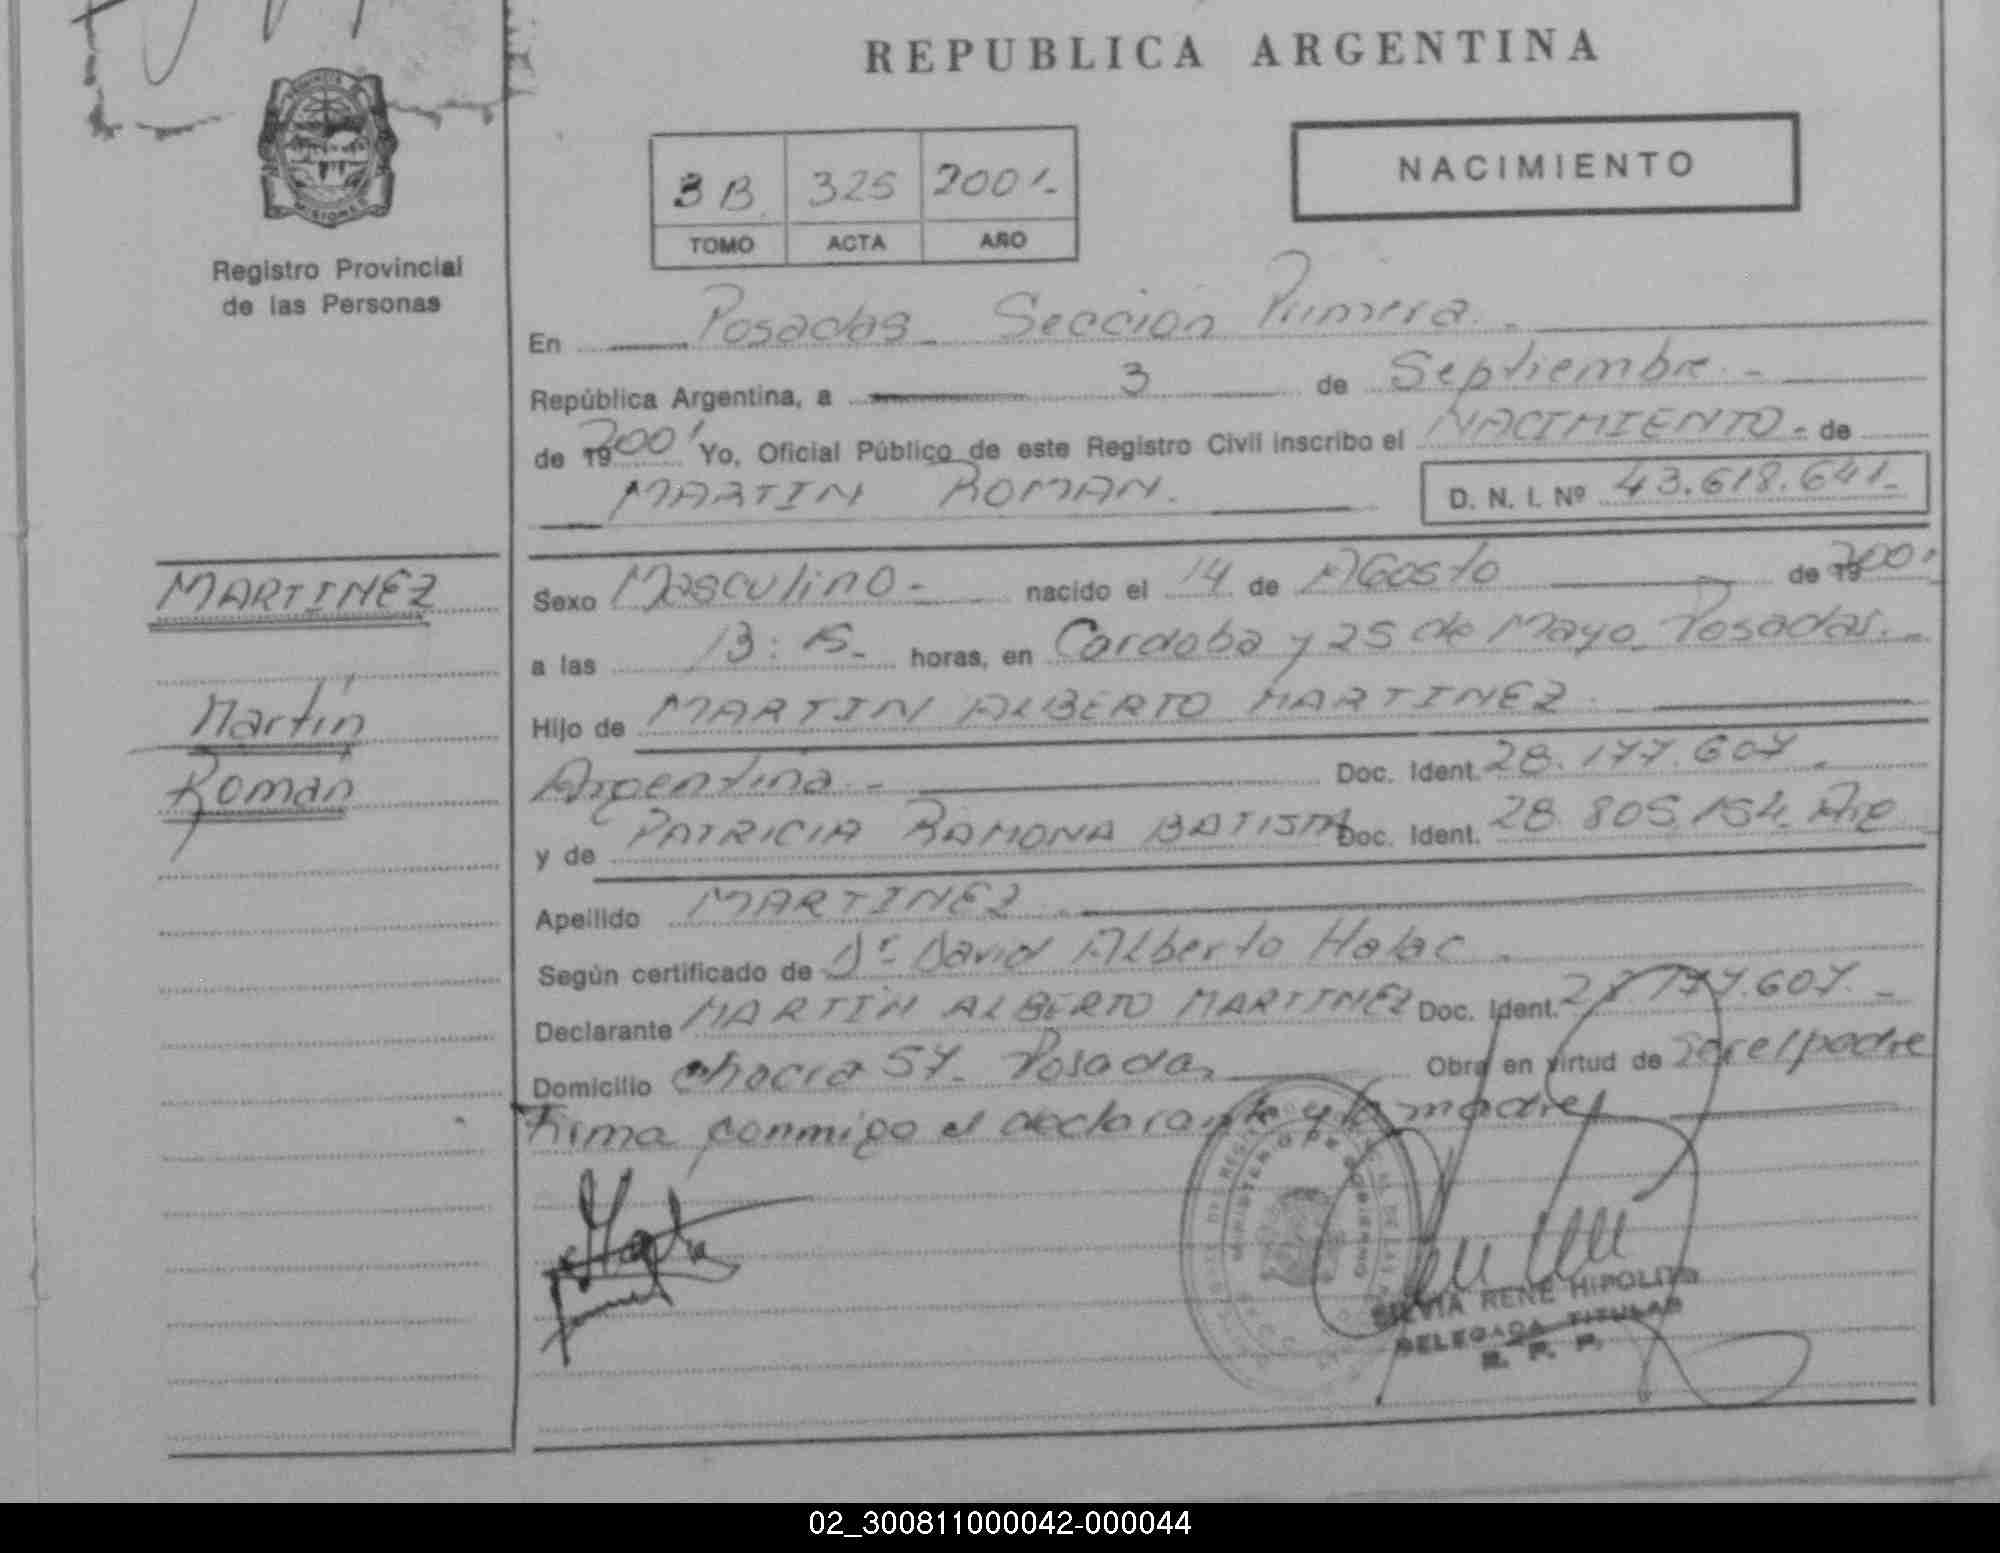 REPUBLICA ARGENTINA
PROVINCIA
MISIONES
Registro Provincial
de las Personas
3 B. 325 2001.-
TOMO ACTA AÑO
NACIMIENTO
En Posadas - Sección Primera.-
República Argentina, a 3 de Septiembre.-
de 19 2001 Yo, Oficial Público de este Registro Civil inscribo el NACIMIENTO - de
MARTIN ROMAN.
D. N. I. Nº 43.618.641.-
MARTINEZ
Martín
Román
Sexo Masculino.- nacido el 14 de AGosto de 19 2001
a las 13:15.- horas, en Cordoba y 25 de Mayo - Posadas.-
Hijo de MARTIN ALBERTO MARTINEZ.-
Argentina.- Doc. Ident. 28.177.607.-
y de PATRICIA RAMONA BATISTA Doc. Ident. 28.805.154. Arg
Apellido MARTINEZ.-
Según certificado de Dr David Alberto Halac.-
Declarante MARTIN ALBERTO MARTINEZ Doc. Ident. 28.177.607.-
Domicilio chacra 57- Posadas Obra en virtud de ser el padre
Firma conmigo el declarante y la madre
MINISTERIO DE GOBIERNO
SILVIA RENE HIPOLITO
DELEGADA TITULAR
R. P. P.
02_300811000042-000044